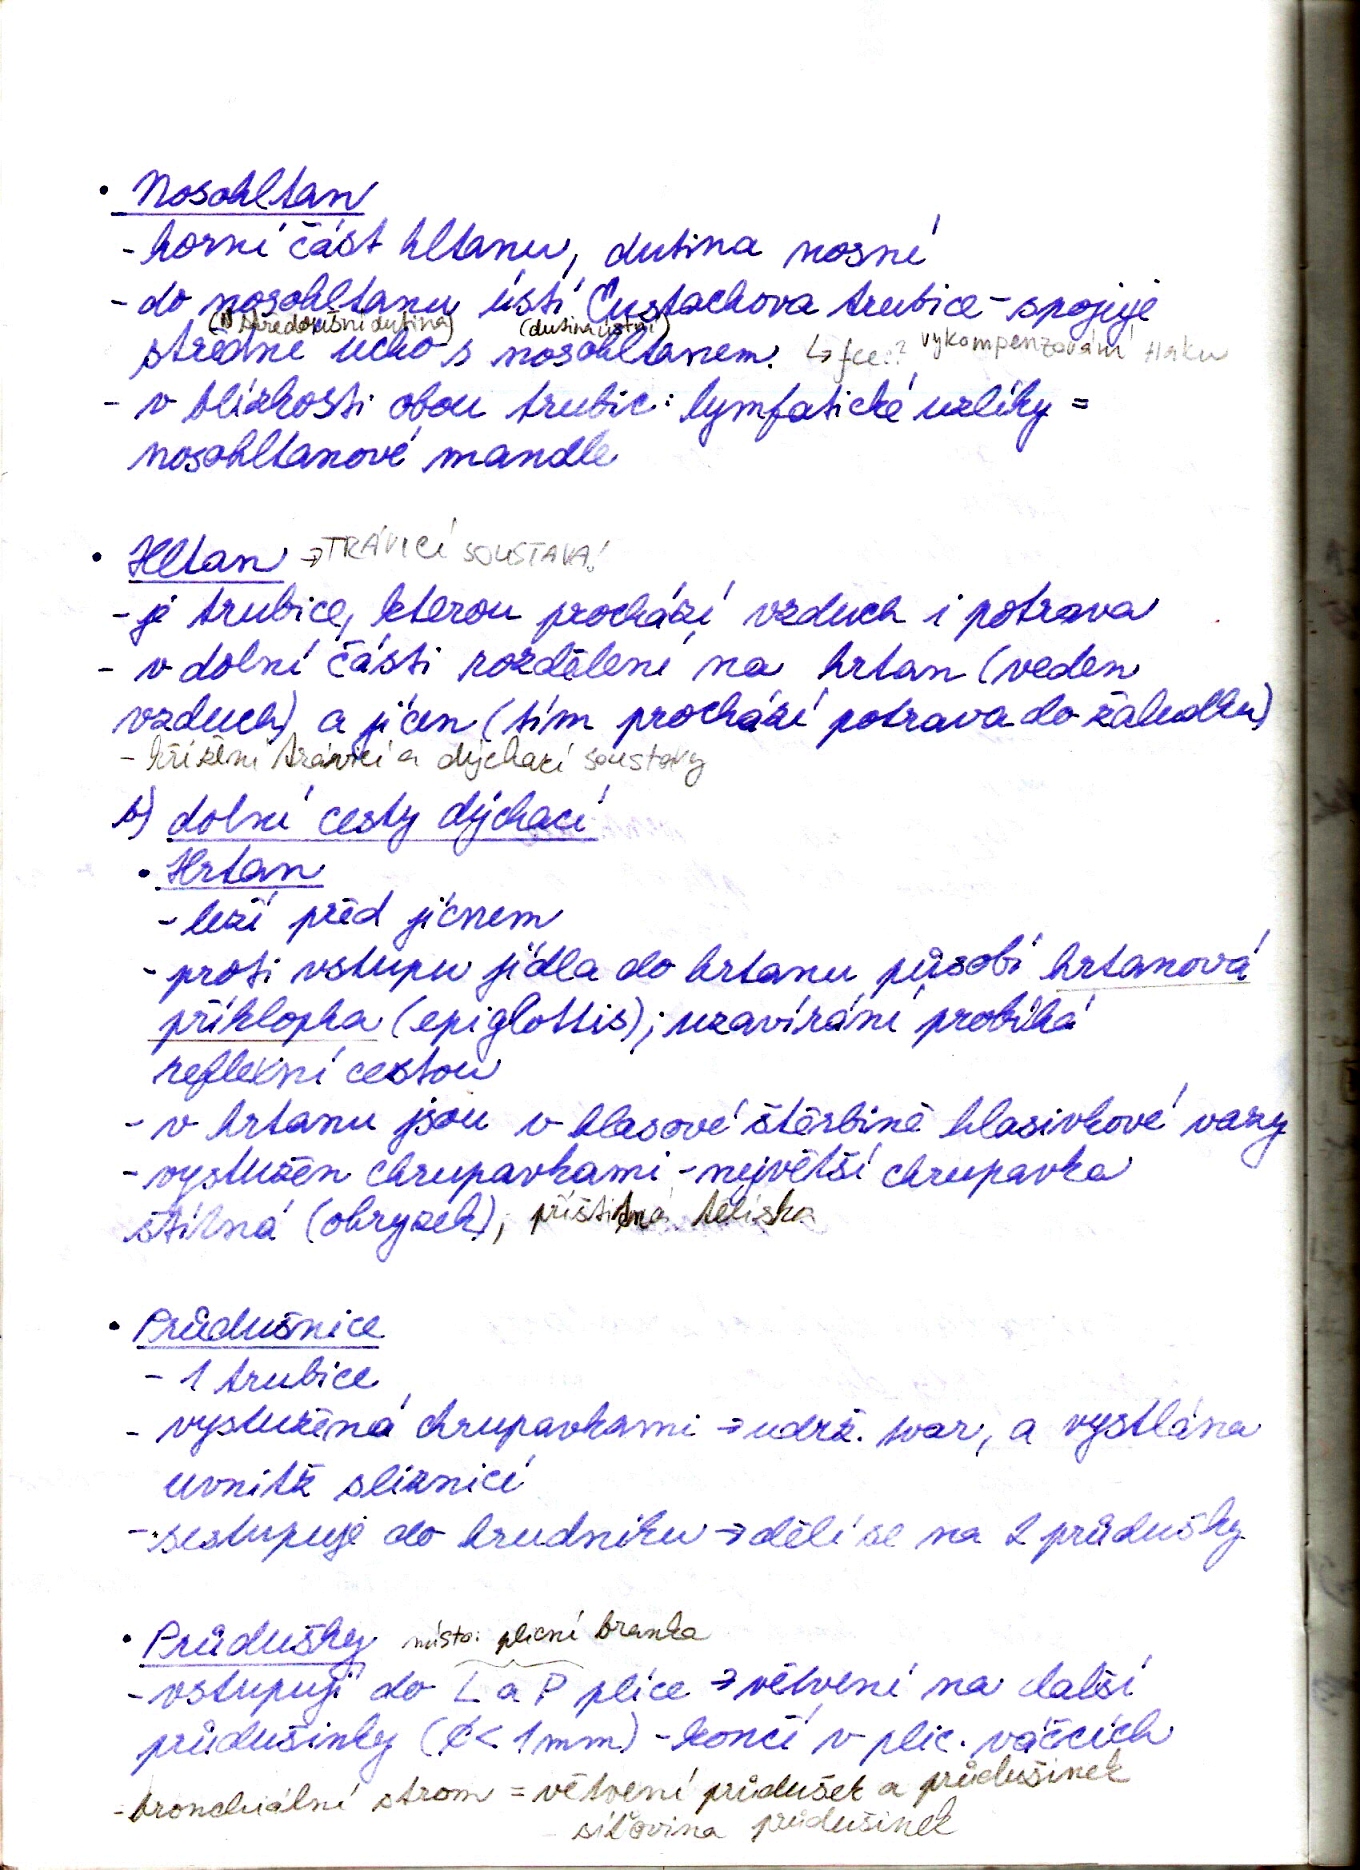 • Nosohltan
- horní část hltanu, dutina nosní
- do nosohltanu ústí Eustachova trubice - spojuje
(středoušní dutina) (dutina ústní)
střední ucho s nosohltanem. ↳ fce:? vykompenzování tlaku
- v blízkosti obou trubic: lymfatické uzlíky =
nosohltanové mandle
• Hltan → TRÁVICÍ SOUSTAVA!
- je trubice, kterou prochází vzduch i potrava
- v dolní části rozdělení na hrtan (veden
vzduch) a jícen (tím prochází potrava do žaludku)
- křížení trávicí a dýchací soustavy
b) dolní cesty dýchací
• Hrtan
- leží před jícnem
- proti vstupu jídla do hrtanu působí hrtanová
příklopka (epiglottis); uzavírání probíhá
reflexní cestou
- v hrtanu jsou v hlasové štěrbině hlasivkové vazy
- vystužen chrupavkami - největší chrupavka
štítná (ohryzek), příštitná tělíska
• Průdušnice
- 1 trubice
- vystužená chrupavkami → udrž. tvar, a vystlána
uvnitř sliznicí
- sestupuje do hrudníku → dělí se na 2 průdušky
• Průdušky místo: plicní branka
- vstupují do L a P plíce → větvení na další
průdušinky (< 1mm) - končí v plic. váčcích
- bronchiální strom = větvení průdušek a průdušinek
- síťovina průdušinek